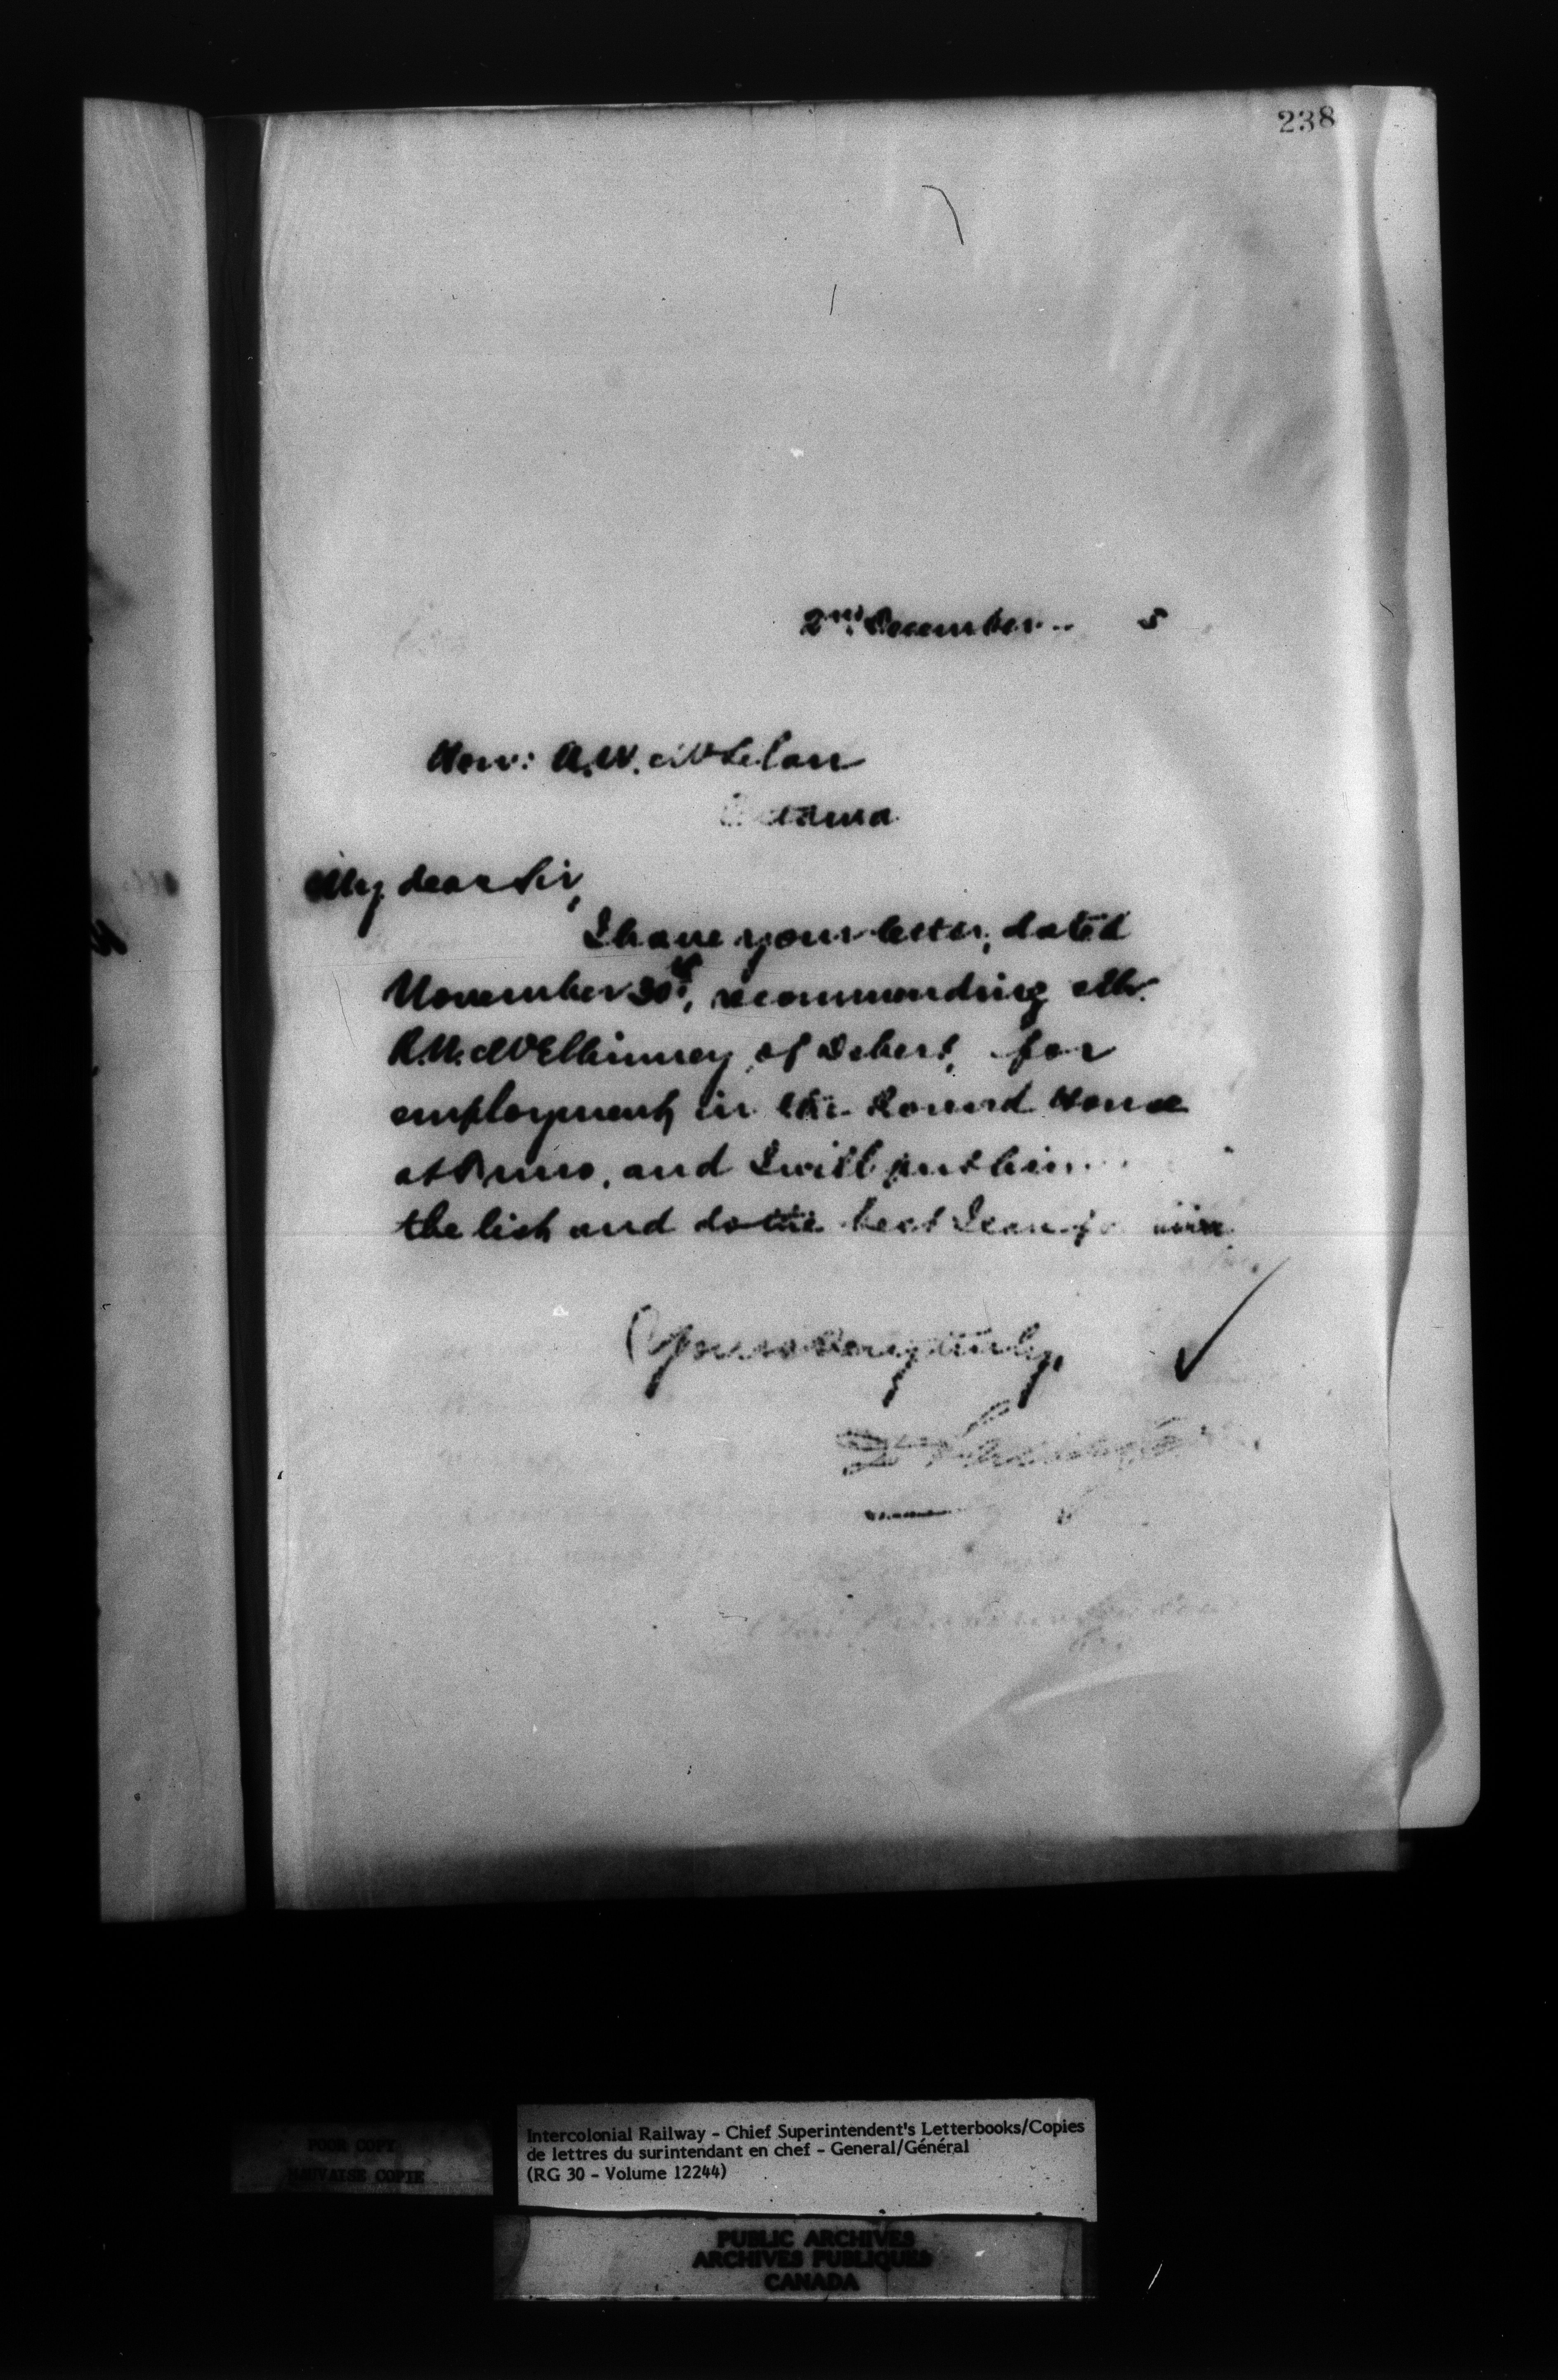 238
2nd December 5
Hon: A. W. McLelan
Ottawa
My dear Sir,
I have your letter, dated
November 30th, recommending Mr.
McElhinney, of Debert, for
employment in the Round House
at Truro, and I will put him
the list and do the best I can for him
Yours very truly,
POOR COPY
MAUVAISE COPIE
Intercolonial Railway - Chief Superintendent's Letterbooks/Copies
de lettres du surintendant en chef - General/Général
(RG 30 - Volume 12244)
PUBLIC ARCHIVES
ARCHIVES PUBLIQUES
CANADA